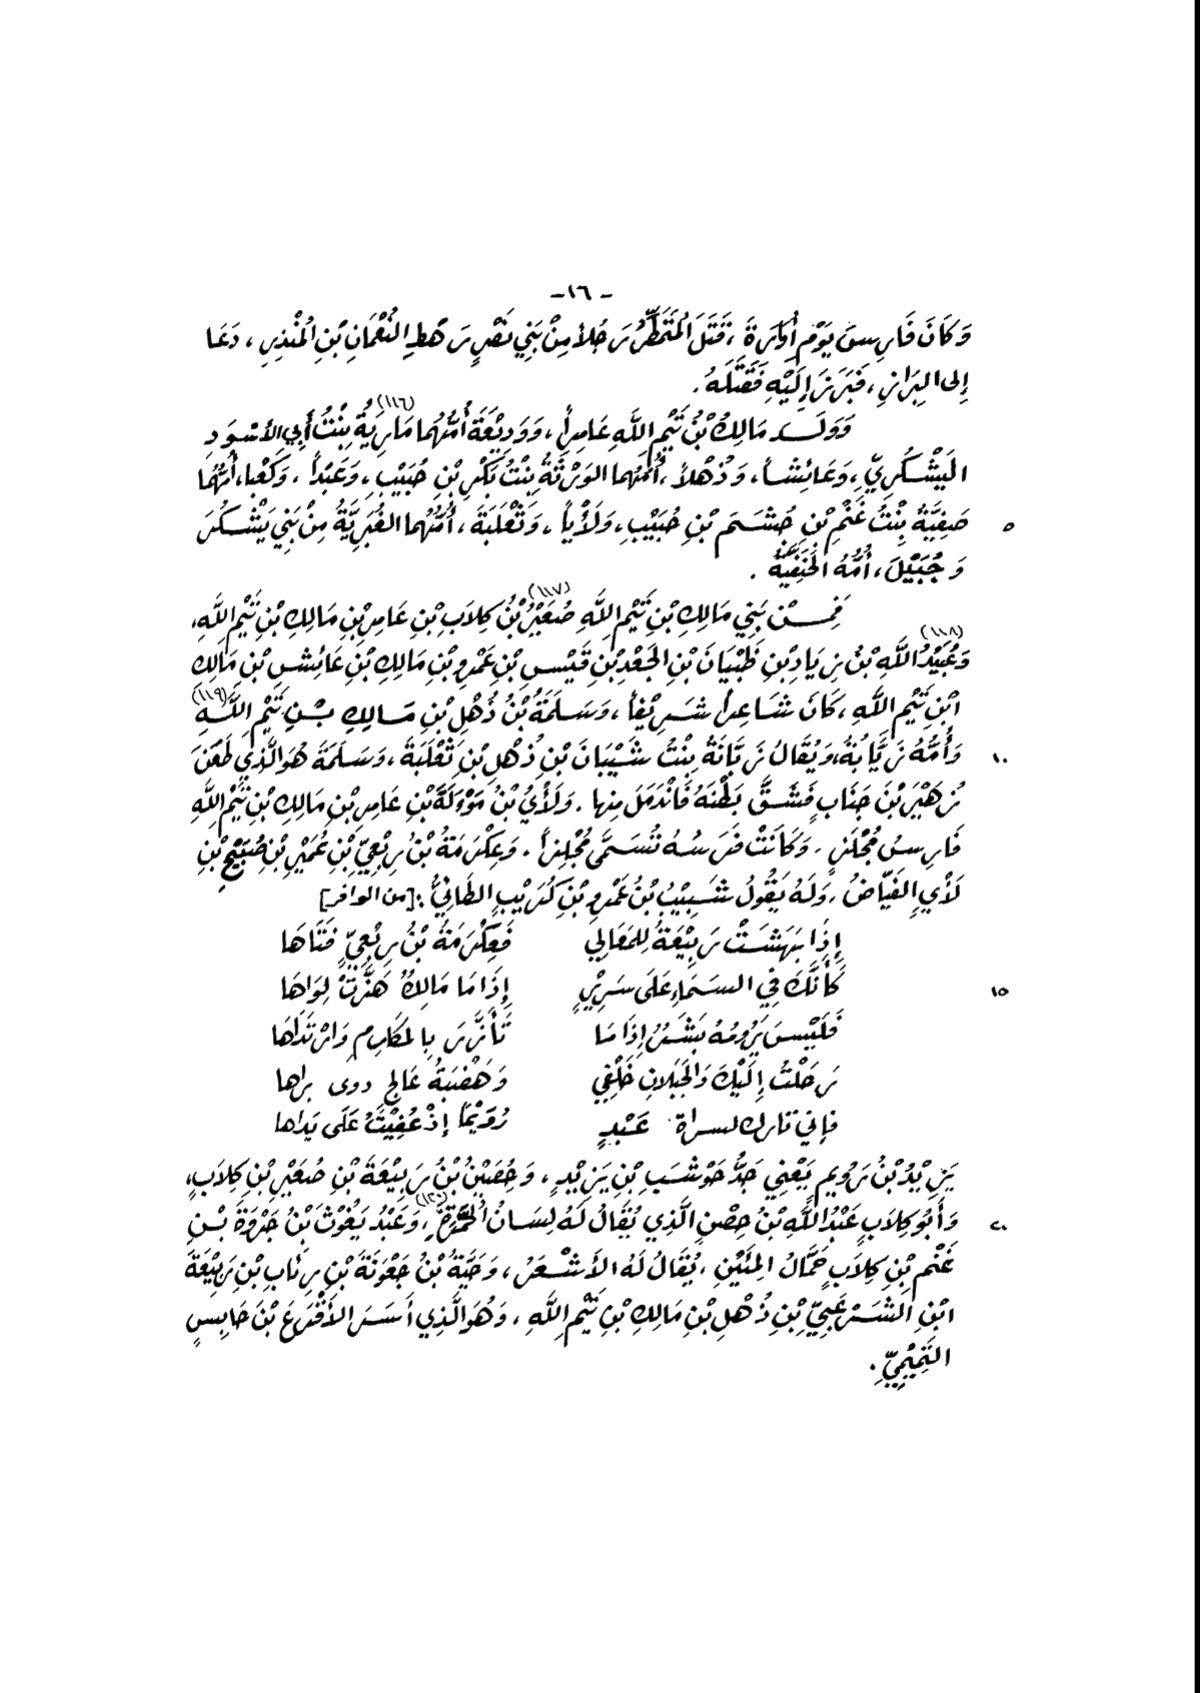 -١٦-
وَكَانَ فَارِسَ يَوْمِ أُوَارَةَ ، فَقَتَلَ المُتَمَطِّرُ رَجُلاً مِنْ بَنِي نَصْرٍ رَهْطِ النُّعْمَانِ بْنِ المُنْذِرِ ، دَعَا
إِلى البِرَازِ ، فَبَرَزَ إِلَيْهِ فَقَتَلَهُ .
وَوَلَدَ مَالِكُ بْنُ تَيْمِ اللَّهِ عَامِراً ، وَوَدِيْعَةَ أُمُّهُمَا مَارِيَةُ (١١٦) بِنْتُ أَبِي الأَسْوَدِ
اليَشْكُرِيِّ ، وَعَائِشاً ، وَذُهْلاً ، أُمُّهُما الوَرْثَةُ بِنْتُ بَكْرِ بْنِ حُبَيْبٍ ، وَعَبْداً ، وَكَعْبا، أُمُّهُمَا
صَفِيَّةُ بِنْتُ غَنْمِ بْنِ جُشَمَ بْنِ حُبَيْبٍ ، وَلَأْياً ، وَثَعْلَبَةَ ، أُمُّهُما الغُبَرِيَّةُ مِنْ بَنِي يَشْكُرَ ٥
وَجُبَيْلَ ، أُمُّهُ الحَنَفِيَّةُ .
فَمِنْ بَنِي مَالِكِ بْنِ تَيْمِ اللَّهِ صُعَيْرُ (١١٧) بْنُ كِلَابِ بْنِ عَامِرِ بْنِ مَالِكِ بْنِ تَيْمِ اللَّهِ،
وَعُبَيْدُ اللَّهِ (١١٨) بْنُ زِيَادِ بْنِ ظَبْيَانَ بْنِ الجَعْدِ بْنِ قَيْسِ بْنِ عَمْرِو بْنِ مَالِكِ بْنِ عَائِشِ بْنِ مَالِكِ
ابْنِ تَيْمِ اللَّهِ ، كَانَ شَاعِراً شَرِيْفاً ، وَسَلَمَةُ بْنُ ذُهْلِ بْنِ مَالِكِ بْنِ تَيْمِ اللَّهِ (١١٩)
وَأُمُّهُ زَيَّابَةُ، وَيُقَالُ زَبَّانَةُ بِنْتُ شَيْبَانَ بْنِ ذُهْلِ بْنِ ثَعْلَبَةَ ، وَسَلَمَةَ هُوَ الَّذِي طَعَنَ ١٠
زُهَيْرَ بْنَ جَنَابٍ فَشَقَّ بَطْنَهُ فَانْدَمَلَ مِنها . وَلَأْيُ بْنُ مَوْءَلَةَ بْنِ عَامِرِ بْنِ مَالِكِ بْنِ تَيْمِ اللَّهِ
فَارِسُ مُجْلَزٍ . وَكَانَتْ فَرَسُهُ تُسَمَّى مُجْلِزاً . وَعِكْرِمَةُ بْنُ رِبْعِيِّ بْنِ عُمَيْرِ بْنِ صُبَيْحِ بْنِ
لَأْيٍ الفَيَّاضُ ، وَلَهُ يَقُولُ شَبِيْبُ بْنُ عَمْرِو بْنِ كُرَيْبٍ الطَّائِيُّ : [من الوافر]
إِذَا بَهَشَتْ رَبِيْعَةُ لِلمَعَالِي فَعِكْرِمَةُ بْنُ رِبْعِيٍّ فَتَاهَا
كَأَنَّكَ فِي السَّمَاءِ عَلَى سَرِيْرٍ إِذَا مَا مَالِكٌ هَزَّتْ لِوَاهَا ١٥
فَلَيْسَ يَرُومُهُ بَشَرٌ إِذَا مَا تَأَزَّرَ بِالمَكَارِمِ وَارْتَدَاهَا
رَحَلْتُ إِلَيْكَ وَالجَبَلانِ خَلْفِي وَهَضْبَةُ عَالِجٍ دوى براها
فإني تارك لسراة عَبْدٍ رُوَيْمًا إِذْ عُفِيْتُ عَلَى يَدَاها
يَزِيْدُ بْنُ رُوَيمٍ يَعْنِي جَدُّ حَوْشَبِ بْنِ يَزِيْدٍ ، وَحُصَيْنُ بْنُ رَبِيْعَةَ بْنِ صُعَيْرِ بْنِ كِلَابٍ،
وَأَبُو كِلَابٍ عَبْدُ اللَّهِ بْنُ حِصْنٍ الَّذِي يُقَالُ لَهُ لِسَانُ الحُمَّرَةِ (١٢٠)، وَعَبْدُ يَغُوْثَ بْنُ جَرْوَةَ بْنِ ٢٠
غَنْمِ بْنِ كِلَابٍ حَمَّالُ المِئَيْنِ ، يُقَالُ لَهُ الأَشْعَرُ ، وَحَيَّةُ بْنُ جَعْوَنَةَ بْنِ رِئَابِ بْنِ رَبِيْعَةَ
ابْنِ الشَّرْعَبِيِّ بْنِ ذُهْلِ بْنِ مَالِكِ بْنِ تَيْمِ اللَّهِ ، وَهُوَ الَّذِي أَسَرَ الأَقْرَعَ بْنَ حَابِسٍ
التَّمِيْمِيِّ .